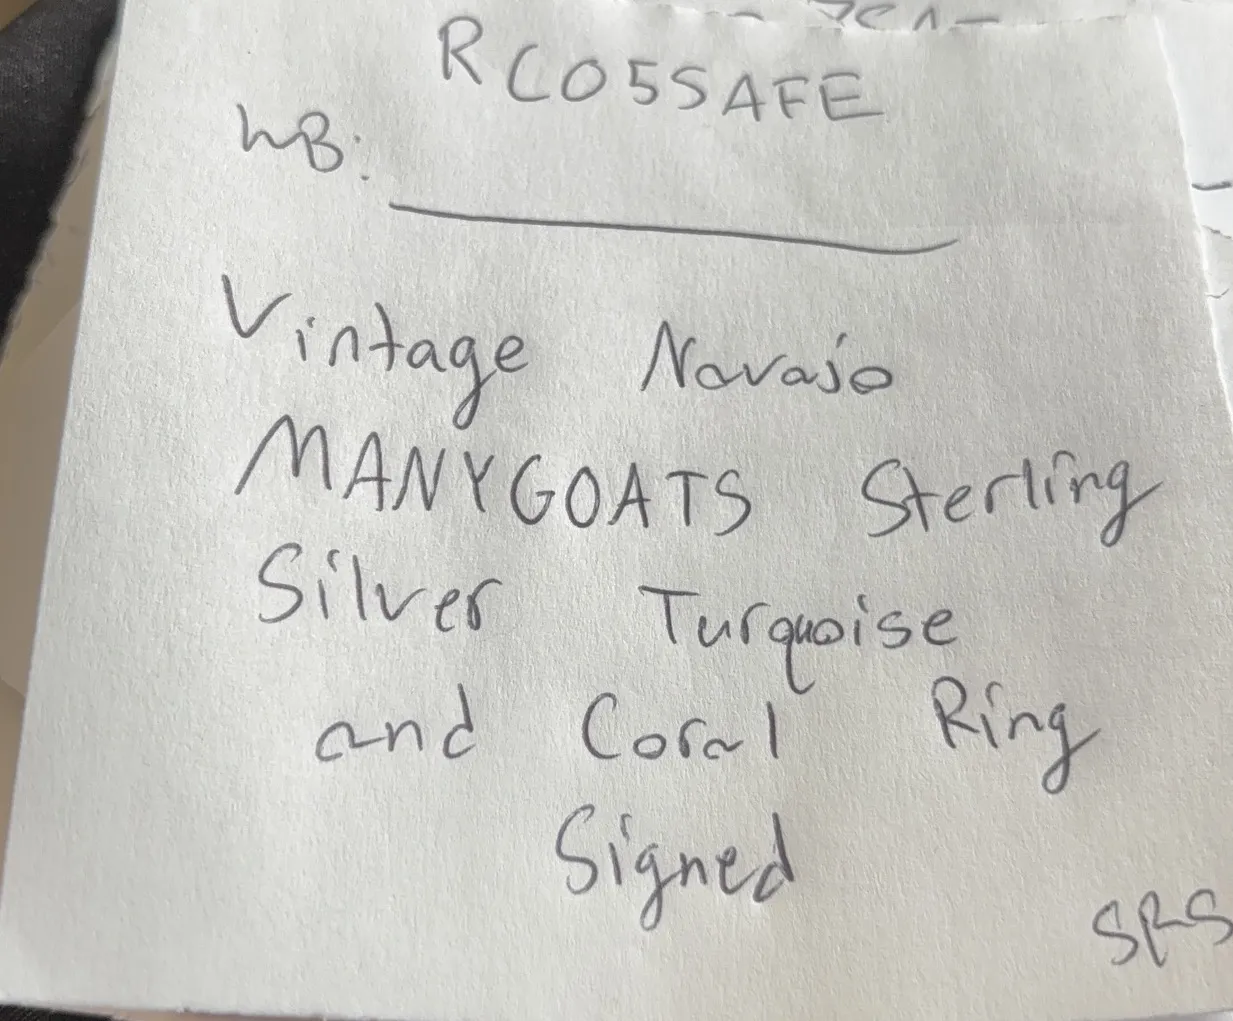 RC055SAFE
WB:
Vintage Navajo
MANYGOATS Sterling
Silver Turquoise
and Coral Ring
Signed
SRS